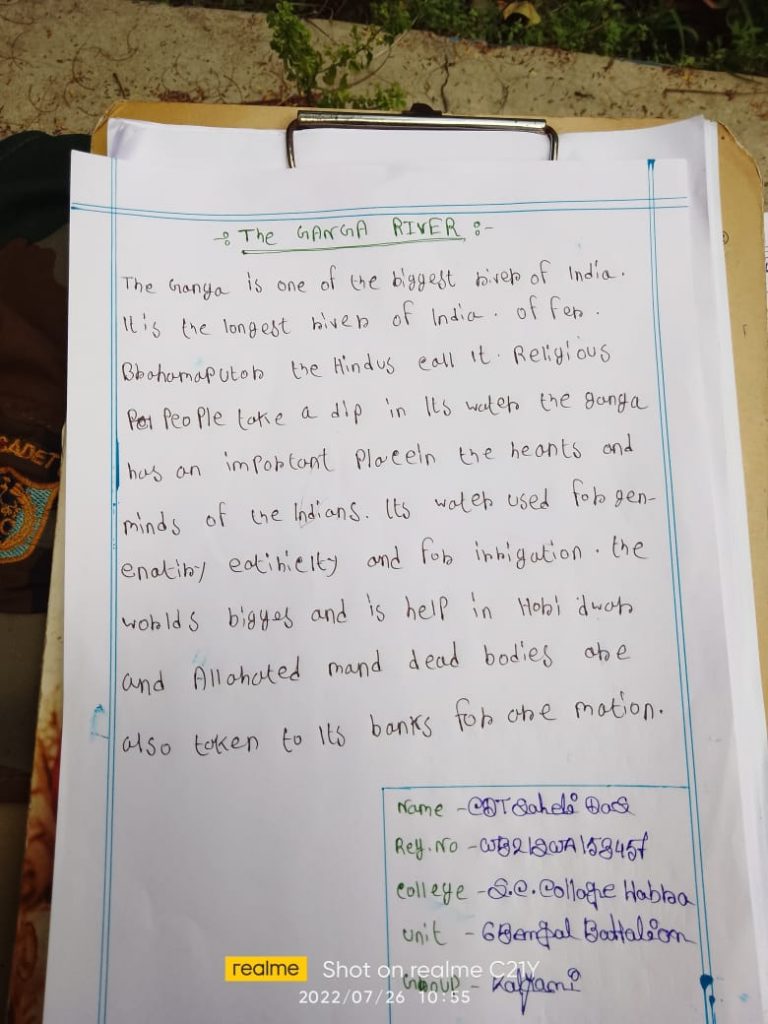 -: The GANGA RIVER :-
The Ganga is one of the biggest river of India.
It is the longest river of India. of fer.
Brahamaputor the Hindus call it. Religious
People take a dip in Its water the ganga
has an important Placein the hearts and
minds of the Indians. Its water used for gen-
eratiry eatiricity and for irrigation. the
worlds bigges and is help in Hori dwar
and Allahated mand dead bodies are
also taken to Its banks for are mation.
Name - CDT Saheli Das
Reg. No - WB21SWA158457
College - S.C. Collage Habra
unit - 6 Bengal Battaleon
Group -
CADET
realme Shot on realme C21Y
2022/07/26 10:55